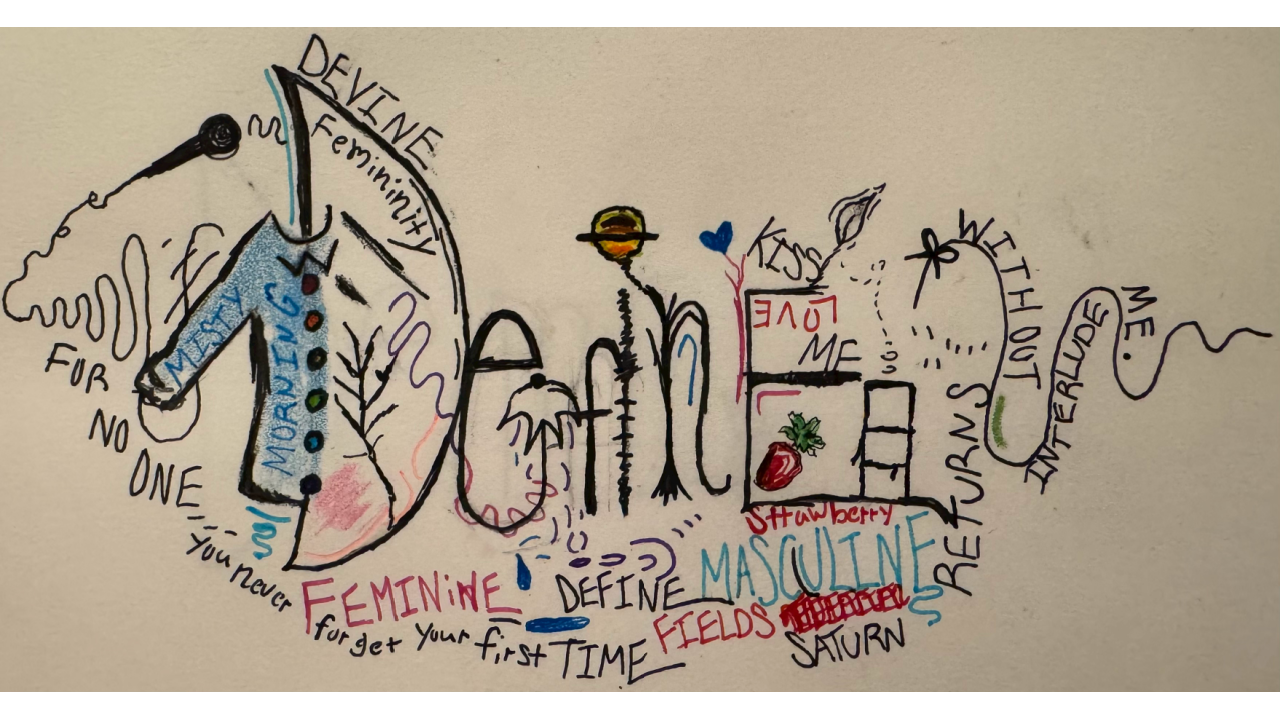 DEVINE
Femininity
MISTY
MORNING
DefinE
KISS
LOVE
ME
FOR
NO
ONE
you never
forget your first TIME
FEMININE
DEFINE
MASCULINE
strawberry
FIELDS
SATURN
RETURNS
WITHOUT
INTERLUDE
ME.